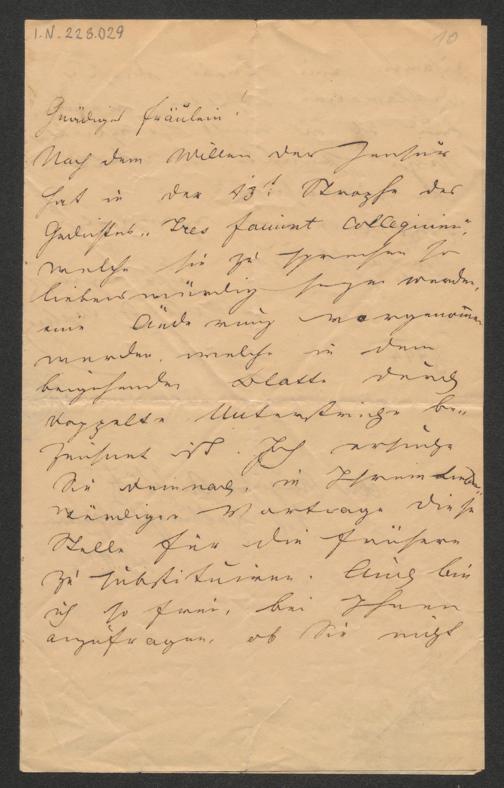 I.N. 228.029
10
Gnädiges Fräulein!
Nach dem Willen der Zensur
hat in der 13t. Strophe des
Gedichtes „Tres faciunt Collegium",
welche Sie zu sprechen so
liebenswürdig sein werden,
eine Änderung vorgenommen
werden, welche in dem
beigehenden Blatte durch
doppelte Unterstriche be-
zeichnet ist. Ich ersuche
Sie demnach, in Ihrem
Vortrage diese
Stelle für die frühere
zu substituiren. Auch bin
ich so frei, bei Ihnen
anzufragen, ob Sie nicht